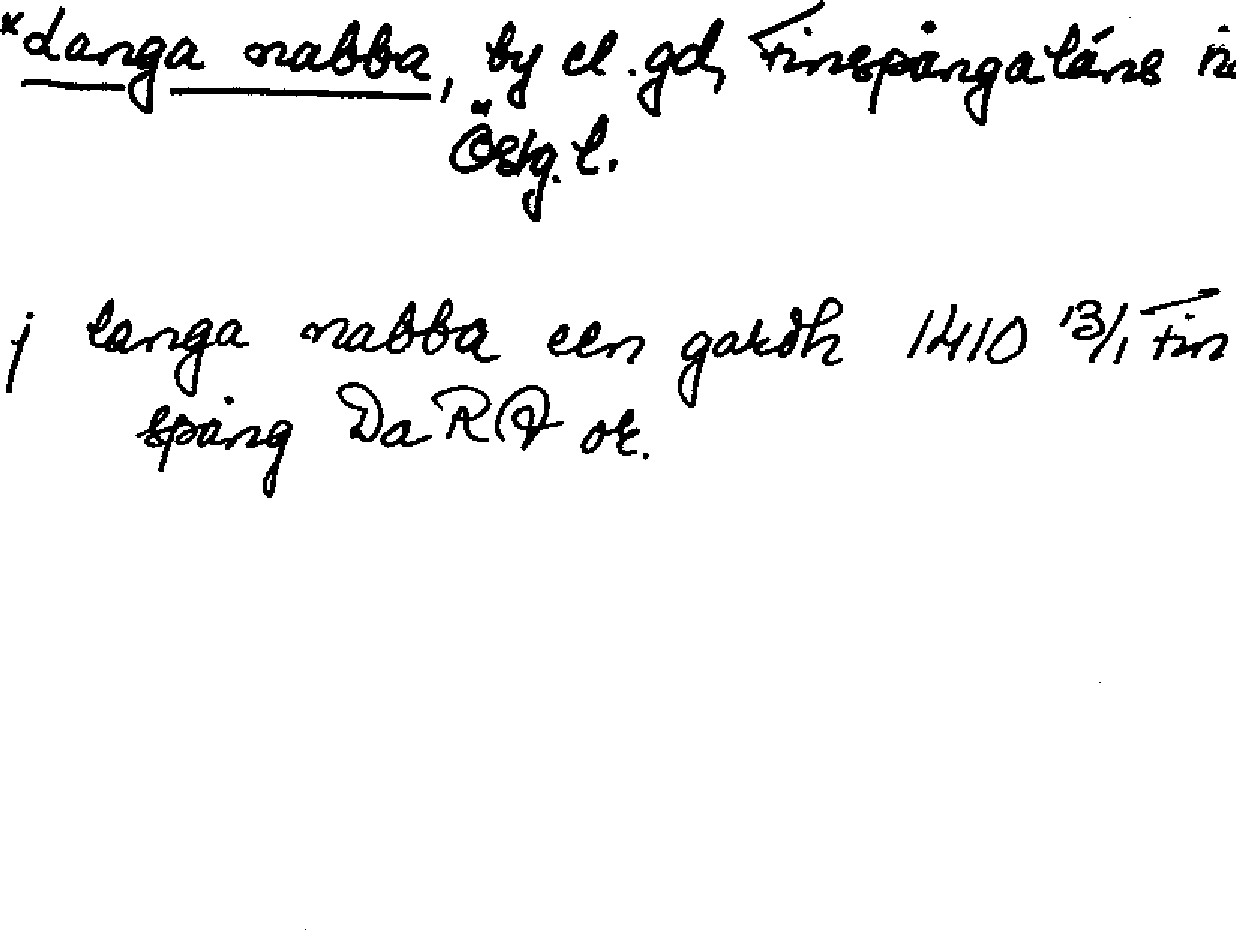 *Langa nabba, by el. gd, Finspånga läns
Östg. l.
j langa nabba een gardh 1410 13/1 Fin
spång Da RA or.